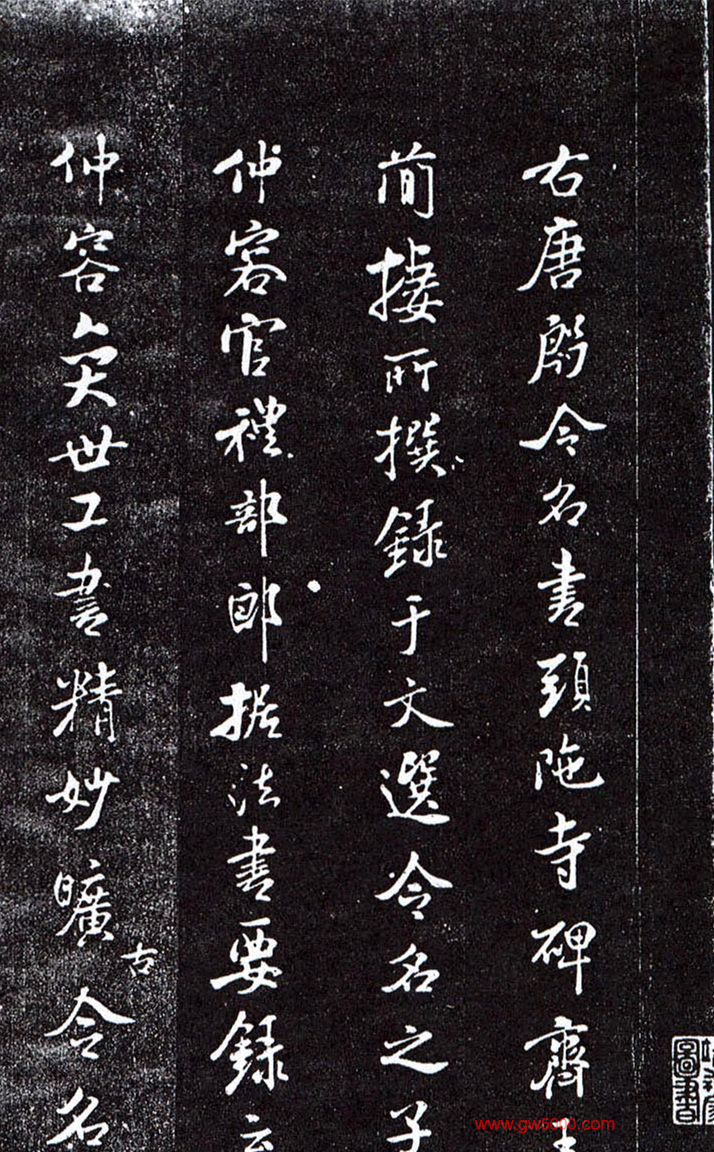 右唐殷令名書頭陁寺碑齊王
蕳棲所撰錄于文選令名之子
仲容官禮部郎据法書要錄云
仲容奕世工書精妙曠古令名
圖書
www.gw5000.com